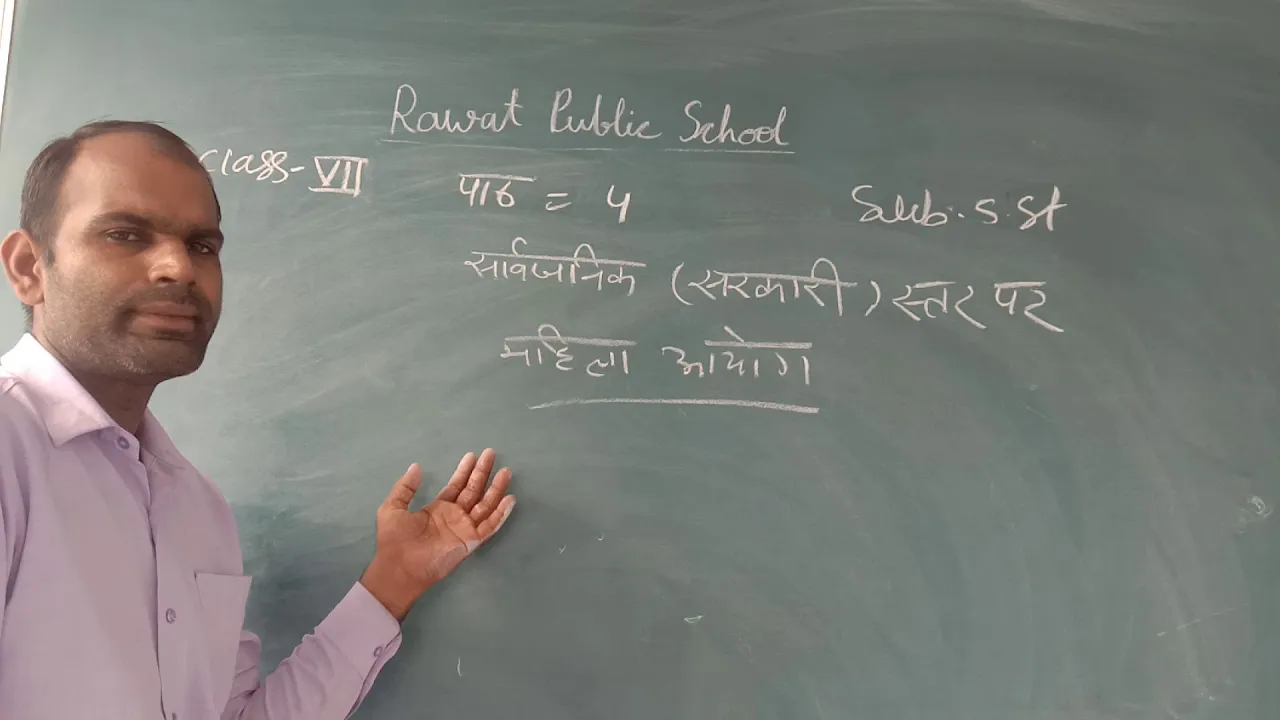 Rawat Public School
Class-VII पाठ = 5 Sub. S.St
सार्वजनिक (सरकारी) स्तर पर
महिला आयोग